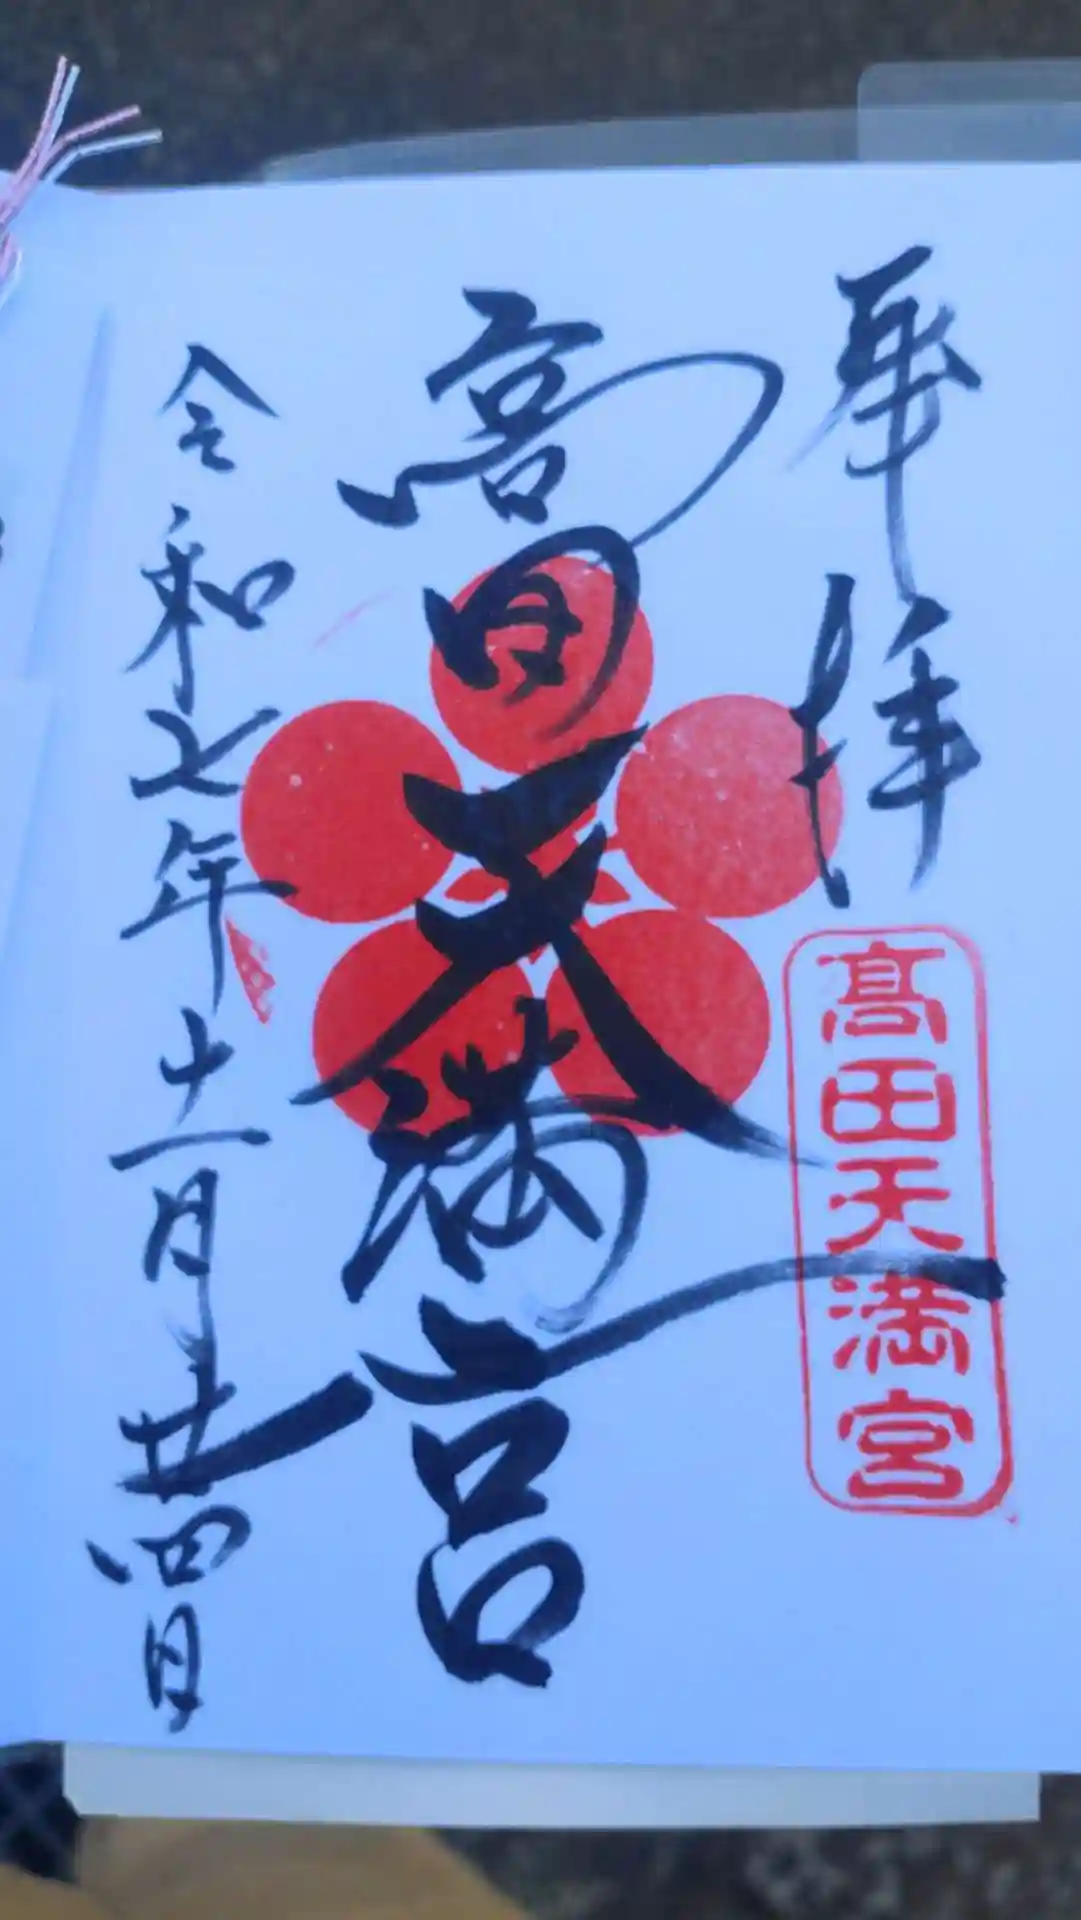 奉拝
高田天満宮
髙田天満宮
令和七年十一月廿四日